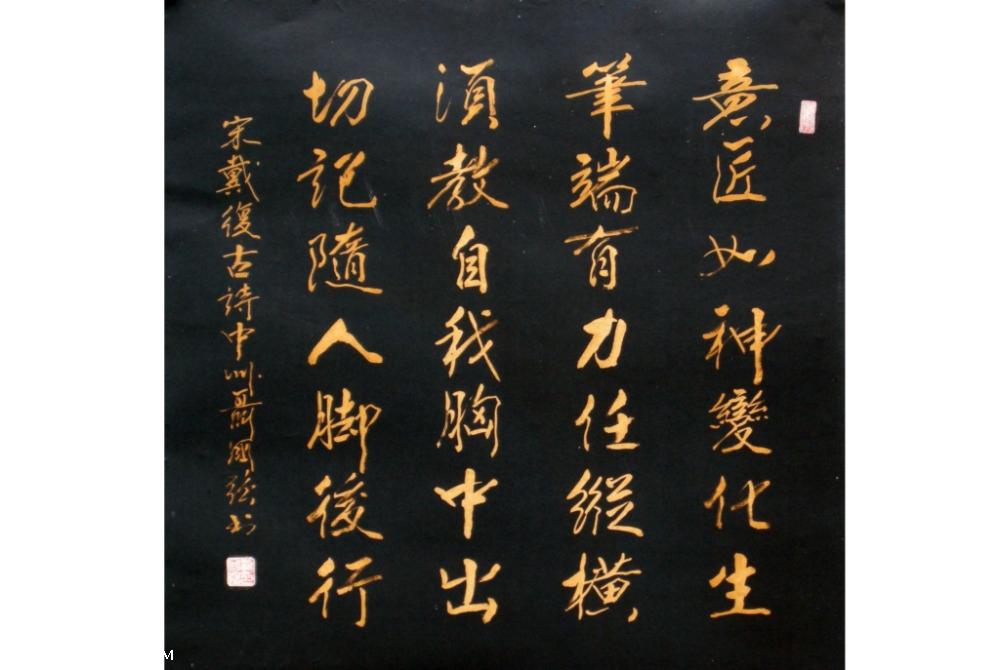 意匠如神變化生
筆端有力任縱橫
須教自我胸中出
切記隨人脚後行
宋戴復古詩中州聶國強书
M